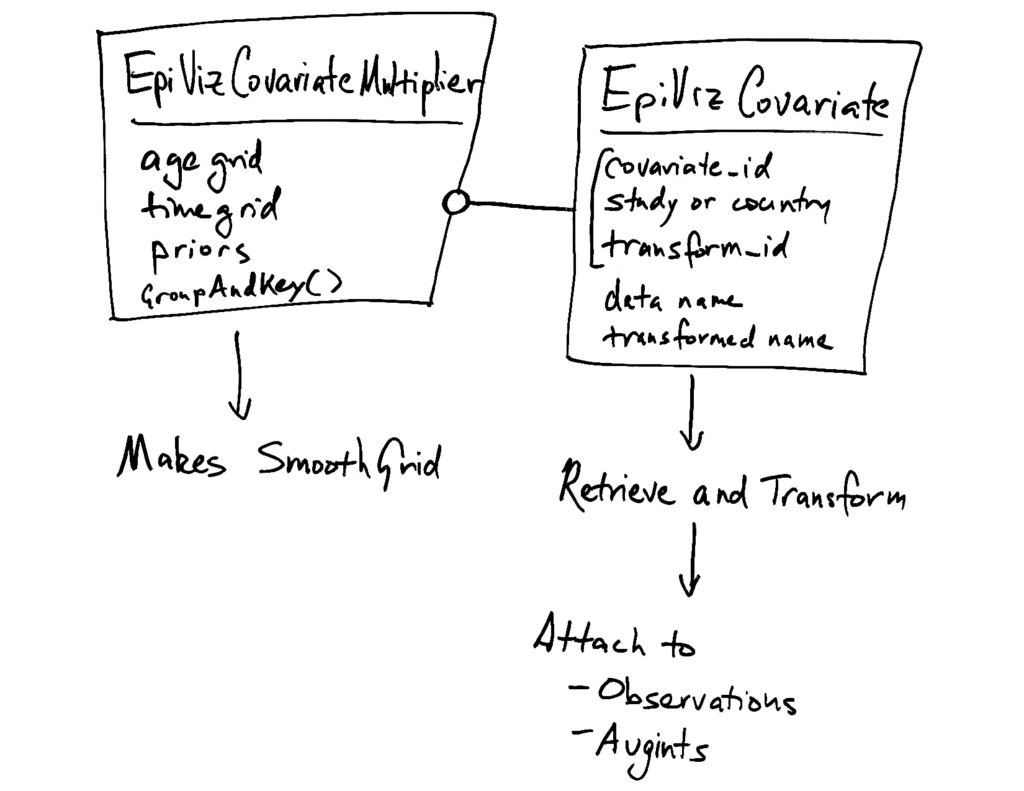 EpiVizCovariateMultiplier
age grid
time grid
priors
GroupAndKey()
Makes SmoothGrid
EpiViz Covariate
covariate_id
study or country
transform_id
data name
transformed name
Retrieve and Transform
Attach to
- Observations
- Avgints